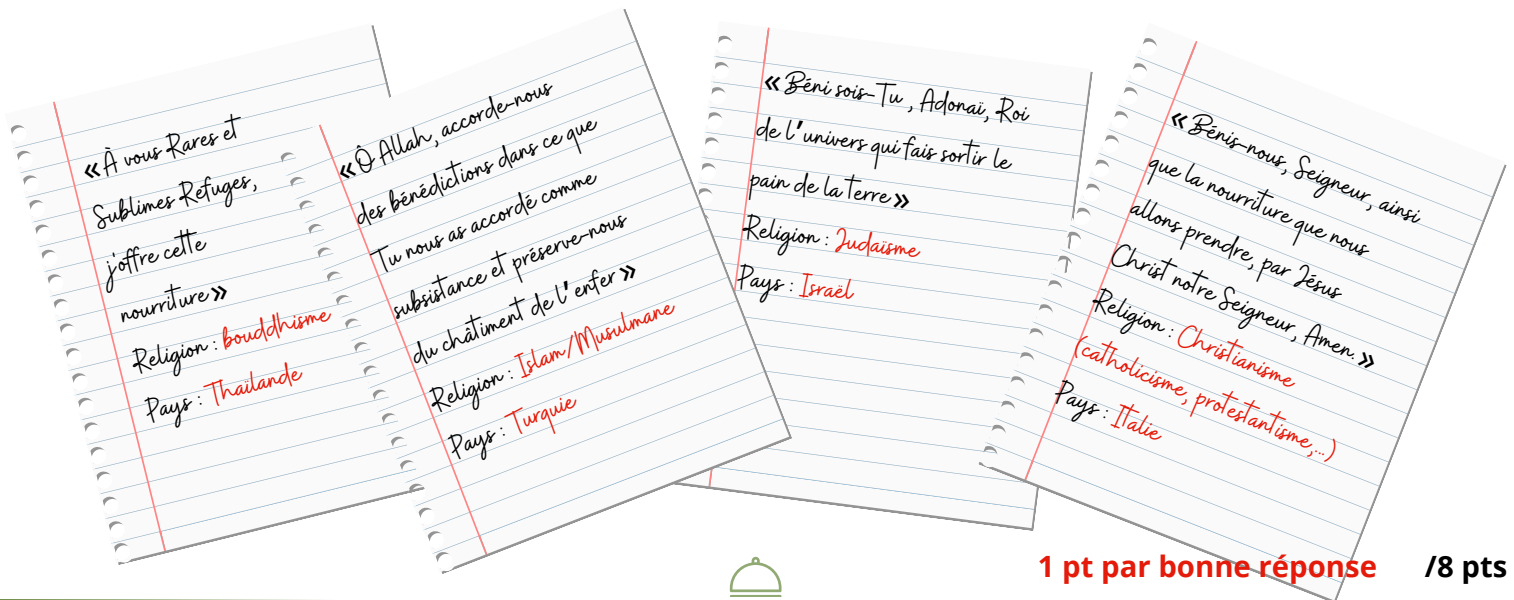 «À vous Rares et
Sublimes Refuges,
j'offre cette
nourriture»
Religion : bouddhisme
Pays : Thaïlande
«Ô Allah, accorde-nous
des bénédictions dans ce que
Tu nous as accordé comme
subsistance et préserve-nous
du châtiment de l'enfer»
Religion : Islam/Musulmane
Pays : Turquie
«Béni sois-Tu, Adonaï, Roi
de l'univers qui fais sortir le
pain de la terre»
Religion : Judaïsme
Pays : Israël
«Bénis-nous, Seigneur, ainsi
que la nourriture que nous
allons prendre, par Jésus
Christ notre Seigneur, Amen.»
Religion : Christianisme
(catholicisme, protestantisme,...)
Pays : Italie
1 pt par bonne réponse /8 pts